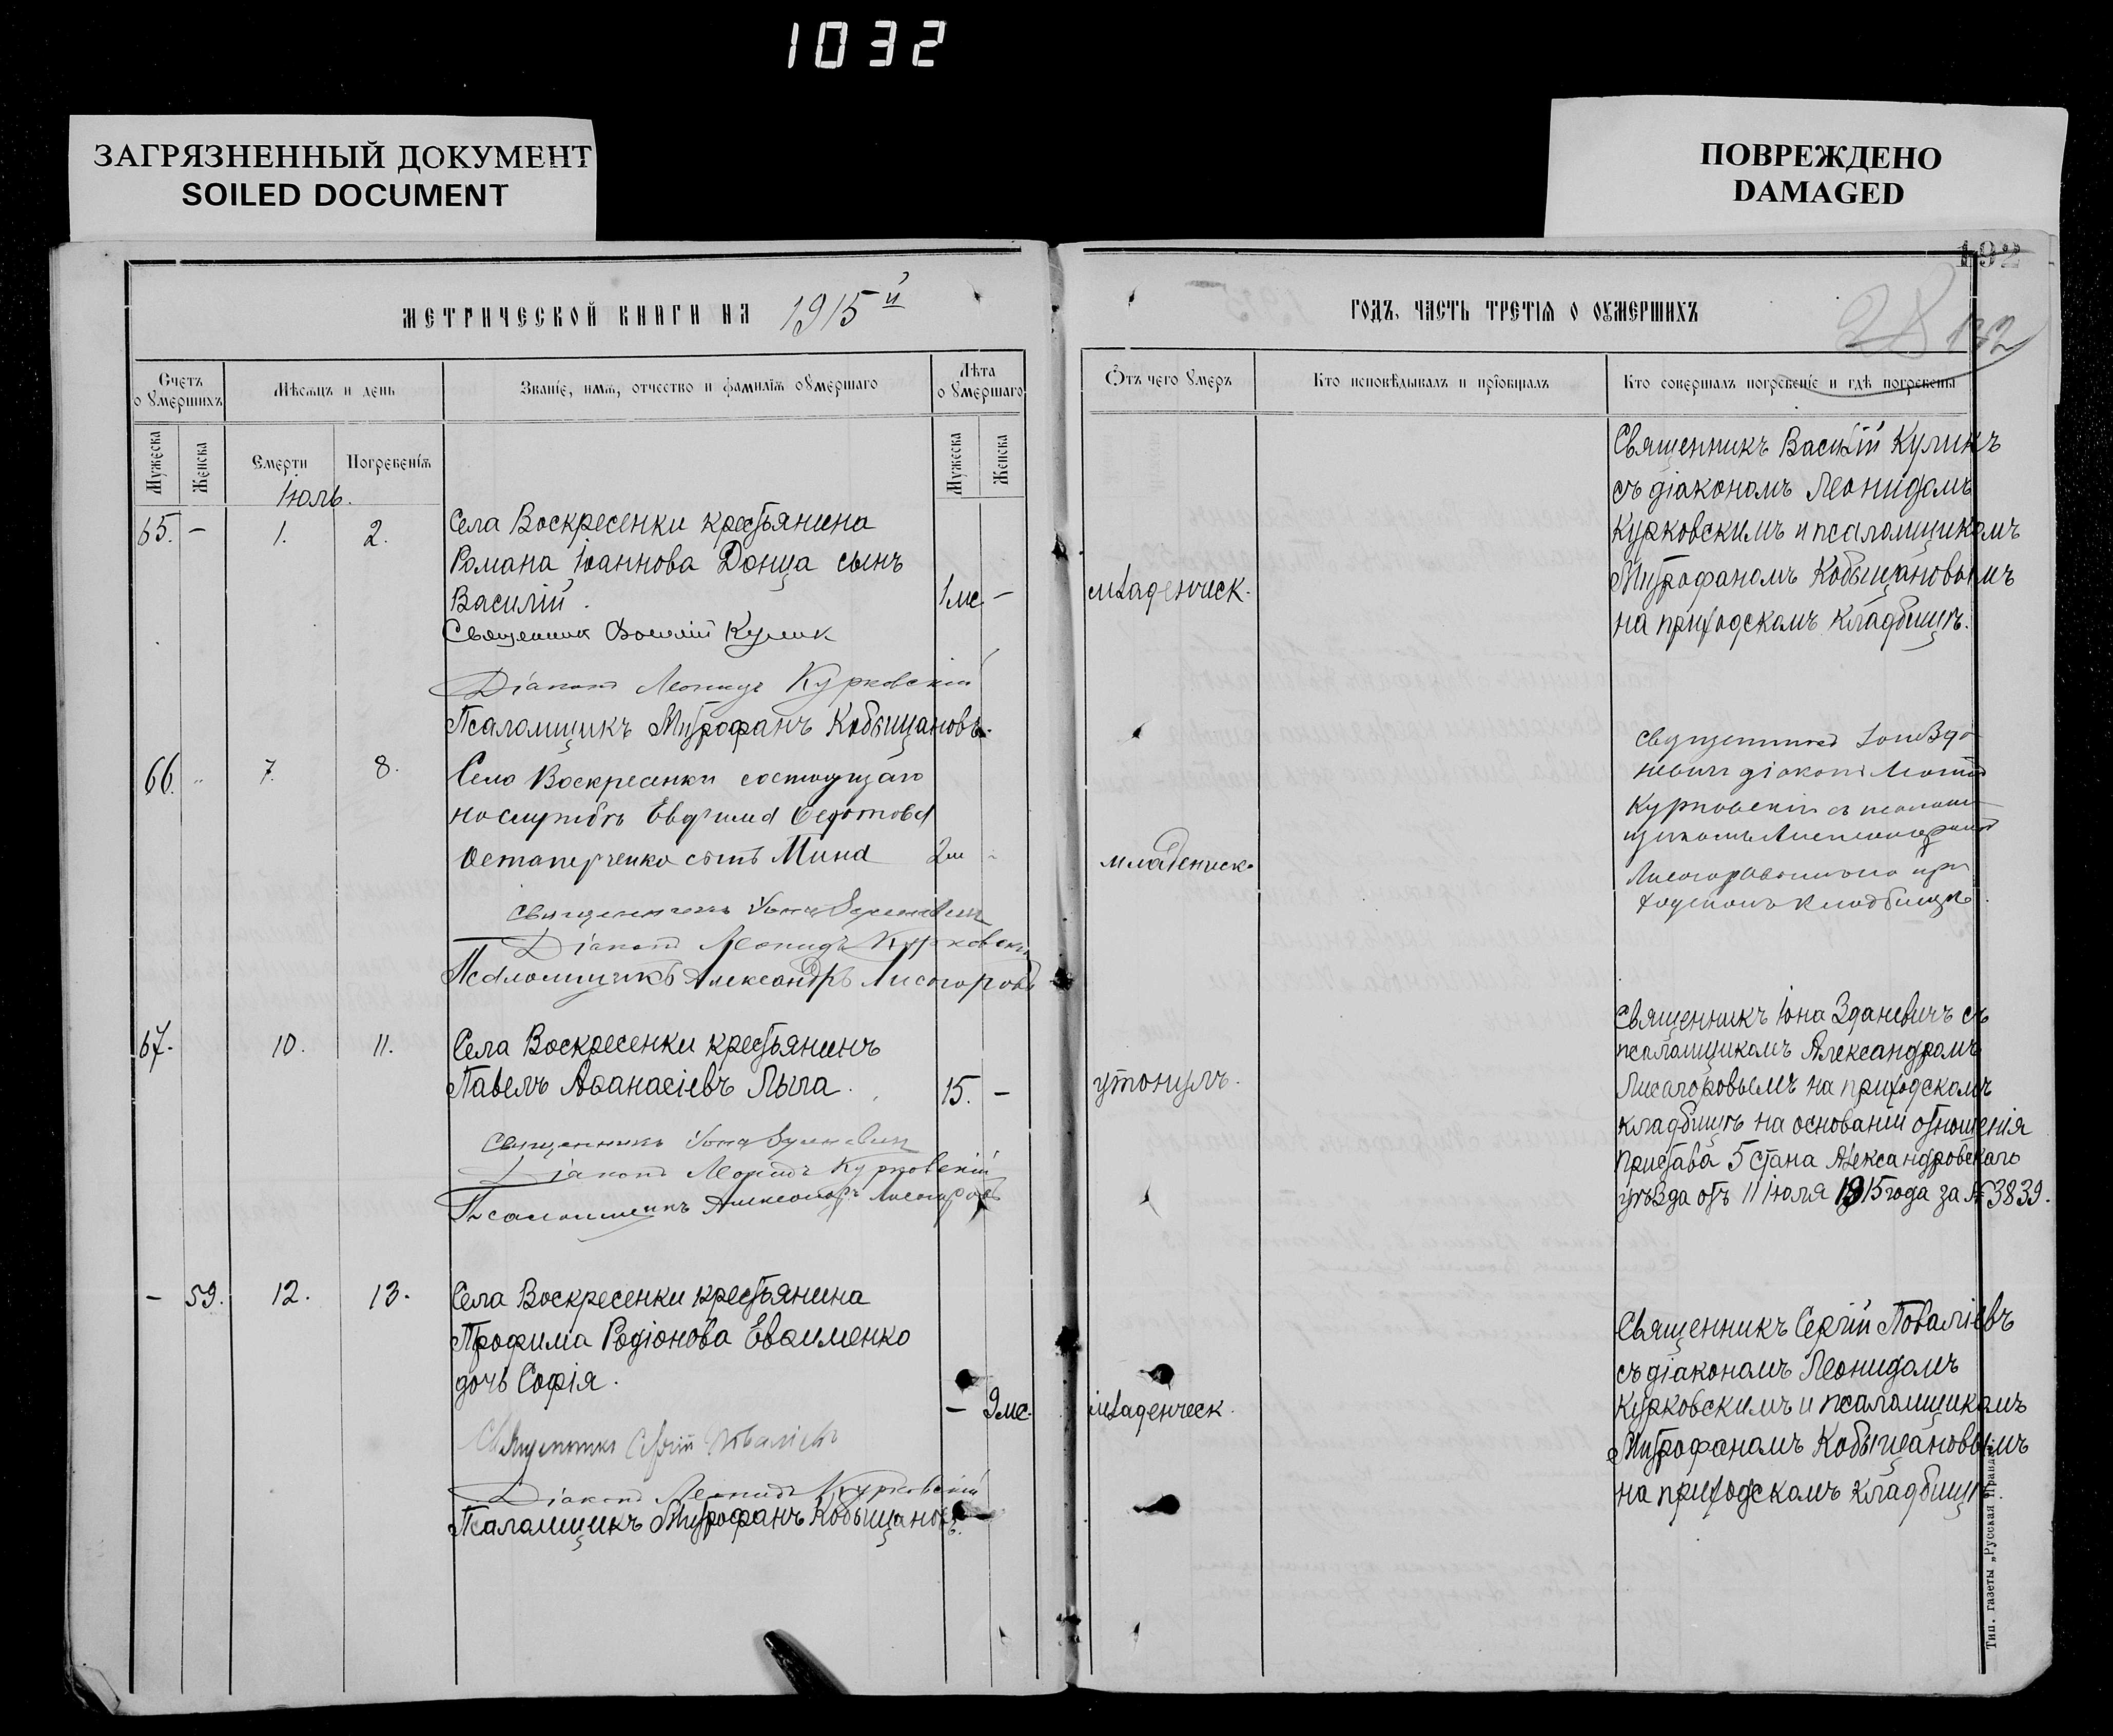 1032
ЗАГРЯЗНЕННЫЙ ДОКУМЕНТ
SOILED DOCUMENT
ПОВРЕЖДЕНО
DAMAGED
192
МЕТРИЧЕСКОЙ КНИГИ НА 1915й
Счетъ о умершихъ
Мѣсяцъ и день
Званіе, имя, отчество и фамилія умершаго
Лѣта о умершаго
Мужеска
Женска
Смерти
Погребенія
Мужеска
Женска
Іюль.
65. – 1. 2. Села Воскресенки крестьянина
Романа Іоаннова Донца сынъ
Василій. 1 мс. –
Священник Василій Кулик
Діаконъ Леонидъ Курковскій
Псаломщикъ Митрофанъ Кобыщановъ.
66. 7. 8. Село Воскресенки состоящаго
на службѣ Евфима Федотова
сынъ Мина 2 м
Священникъ Іона Зданевичъ
Діаконъ Леонидъ Курковскій
Псаломщикъ Александръ Лисогоровъ
67. 10. 11. Села Воскресенки крестьянинъ
Павелъ Аѳанасіевъ Лыга. 15. –
Священникъ Іона Зданевич
Діаконъ Леонидъ Курковскій
Псаломщикъ Александръ Лисогоровъ
– 59. 12. 13. Села Воскресенки крестьянина
Трофима Родіонова Евѳименко
дочь Софія.
– 9 мс.
Священникъ Сергій Поваліевъ
Діаконъ Леонидъ Курковскій
Псаломщикъ Митрофанъ Кобыщановъ.
ГОДЪ, ЧАСТЬ ТРЕТІЯ О УМЕРШИХЪ
132
Отъ чего умеръ
Кто исповѣдывалъ и пріобщалъ
Кто совершалъ погребеніе и гдѣ погребены
Священникъ Василій Куликъ
съ діакономъ Леонидомъ
Курковскимъ и псаломщикомъ
младенческ. Митрофаномъ Кобыщановымъ
на приходскомъ кладбищѣ.
Священникъ Іона Зда-
невичъ діаконъ Леонид
Курковскій съ псалом-
щикомъ Александромъ
младенческ.
Лисогоровымъ на при
ходскомъ кладбищѣ.
Священникъ Іона Зданевичъ съ
псаломщикомъ Александромъ
утонулъ. Лисагоровымъ на приходскомъ
кладбищѣ на основаніи отношенія
Пристава 5 стана Александровскаго
уѣзда отъ 11 Іюля 1915 года за № 3839.
Священникъ Сергій Поваліевъ
съ діакономъ Леонидомъ
младенческ. Курковскимъ и псаломщикомъ
Митрофаномъ Кобыщановымъ
на приходскомъ кладбищѣ.
Тип. газеты „Русская Правда"